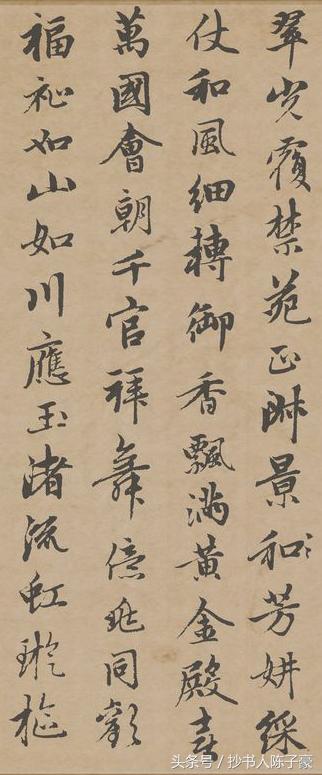 翠光覆禁苑正淑景和芳妍綵
仗和風細轉御香飄滿黄金殿喜
萬國會朝千官拜舞億兆同歡
福祉如山如川應玉渚流虹璇樞
头条号 / 抄书人陈子豪